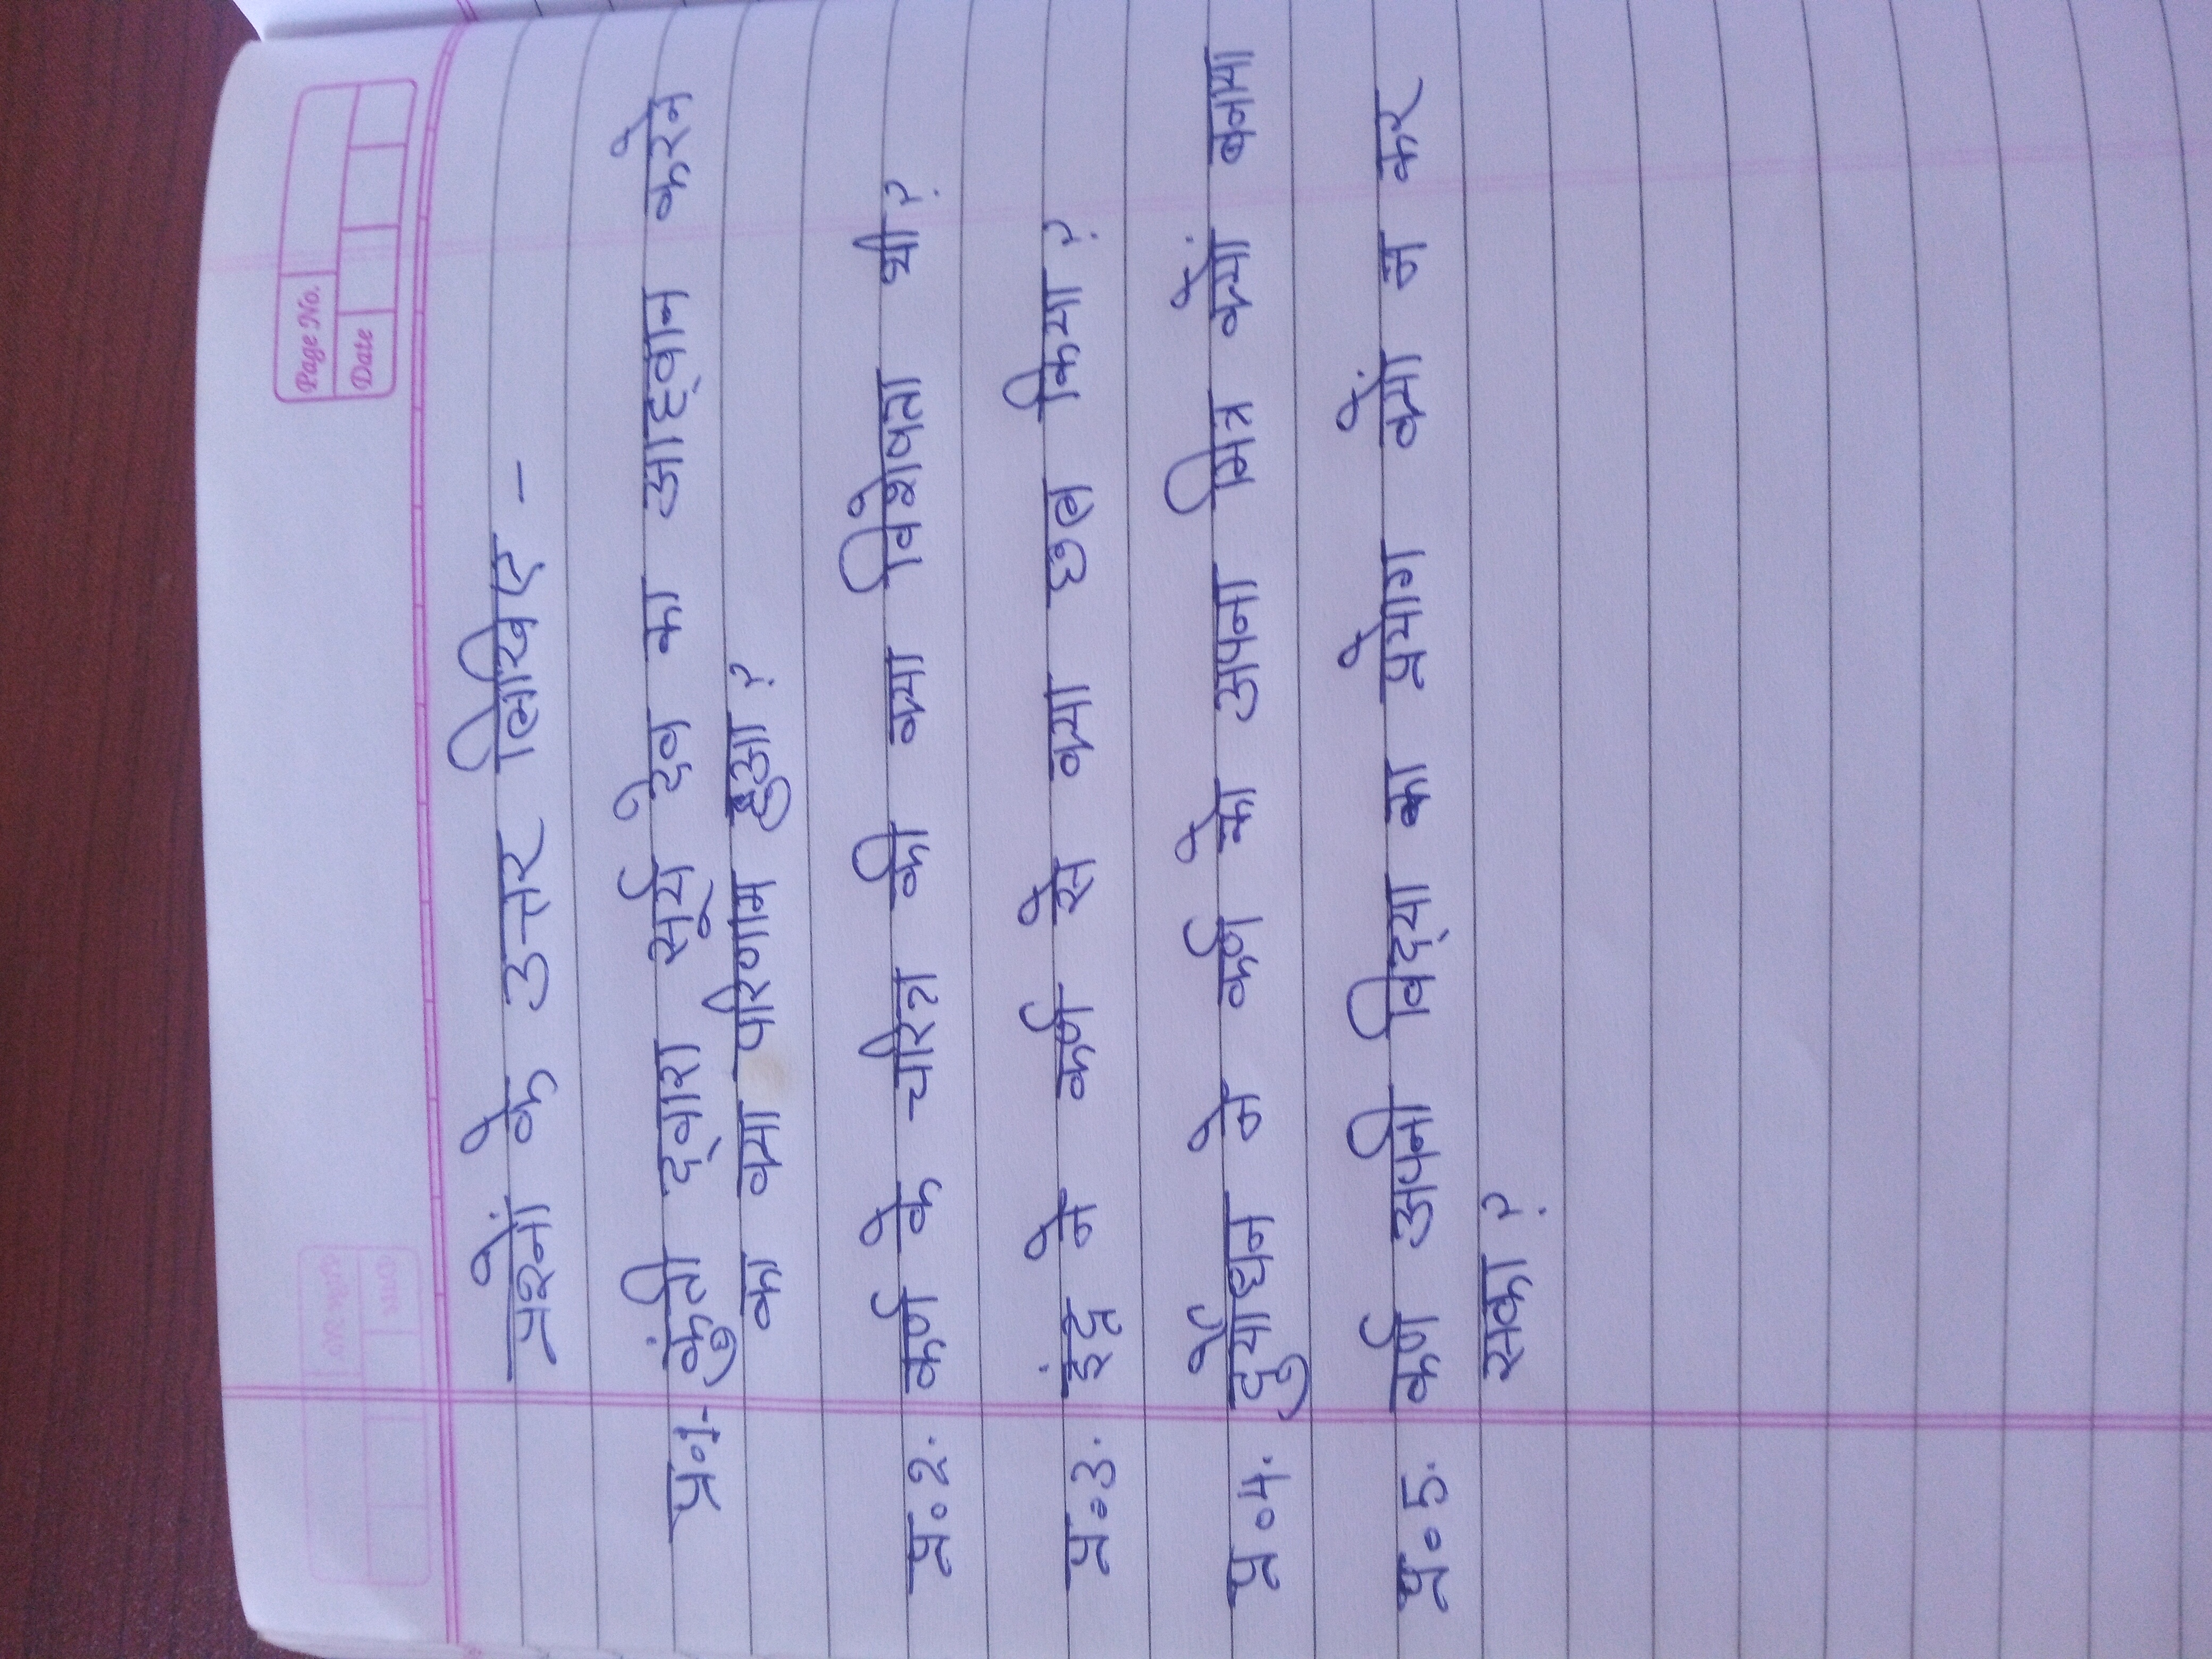 Page No.
Date
प्रश्नों के उत्तर लिखिए -
प्र०1. कुंती द्वारा सूर्य देव का आह्वान करेन
का क्या परिणाम हुआ ?
प्र०2. कर्ण के चरित्र की क्या विशेषता थी ?
प्र०3. इंद्र ने कर्ण से क्या छल किया ?
प्र०4. दुर्योधन ने कर्ण को अपना मित्र क्यों बनाया
प्र०5. कर्ण अपनी विद्या का प्रयोग क्यों न कर
सका ?